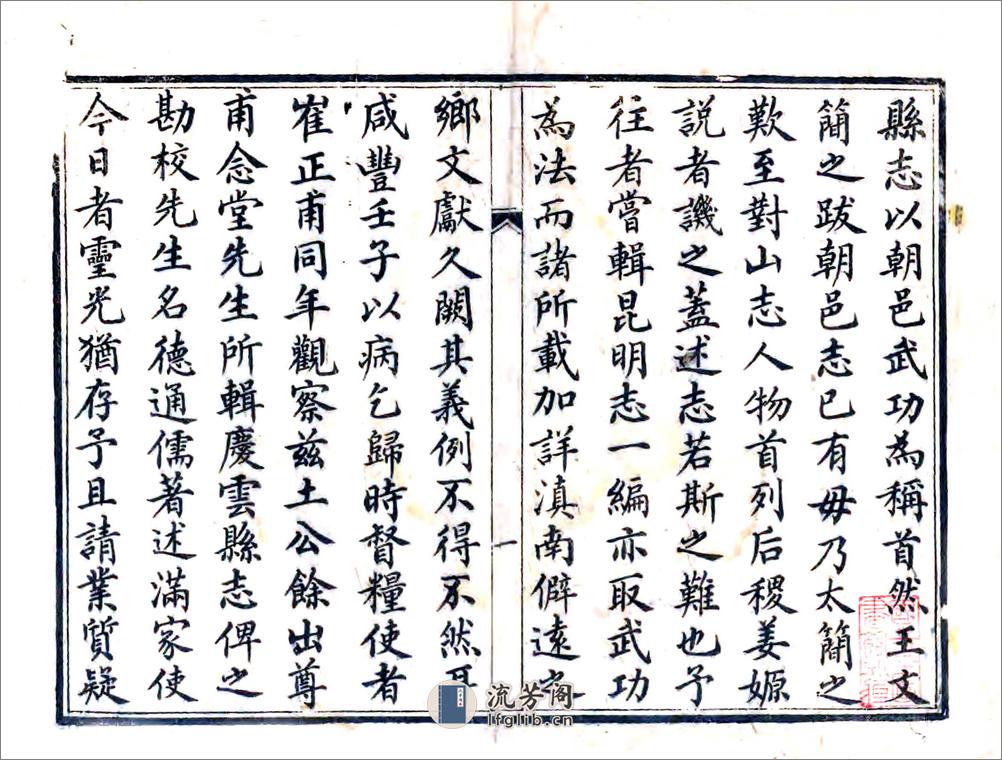 縣志以朝邑武功為稱首然王文
簡之跋朝邑志已有毋乃太簡之
歎至對山志人物首列后稷姜嫄
説者譏之蓋述志若斯之難也予
往者嘗輯昆明志一編亦取武功
為法而諸所載加詳滇南僻遠之
鄉文獻久闕其義例不得不然耳
咸豐壬子以病乞歸時督糧使者
崔正甫同年觀察兹土公餘出尊
甫念堂先生所輯慶雲縣志俾之
勘校先生名德通儒著述滿家使
今日者靈光猶存予且請業質疑
一
流芳阁
lfglib.cn